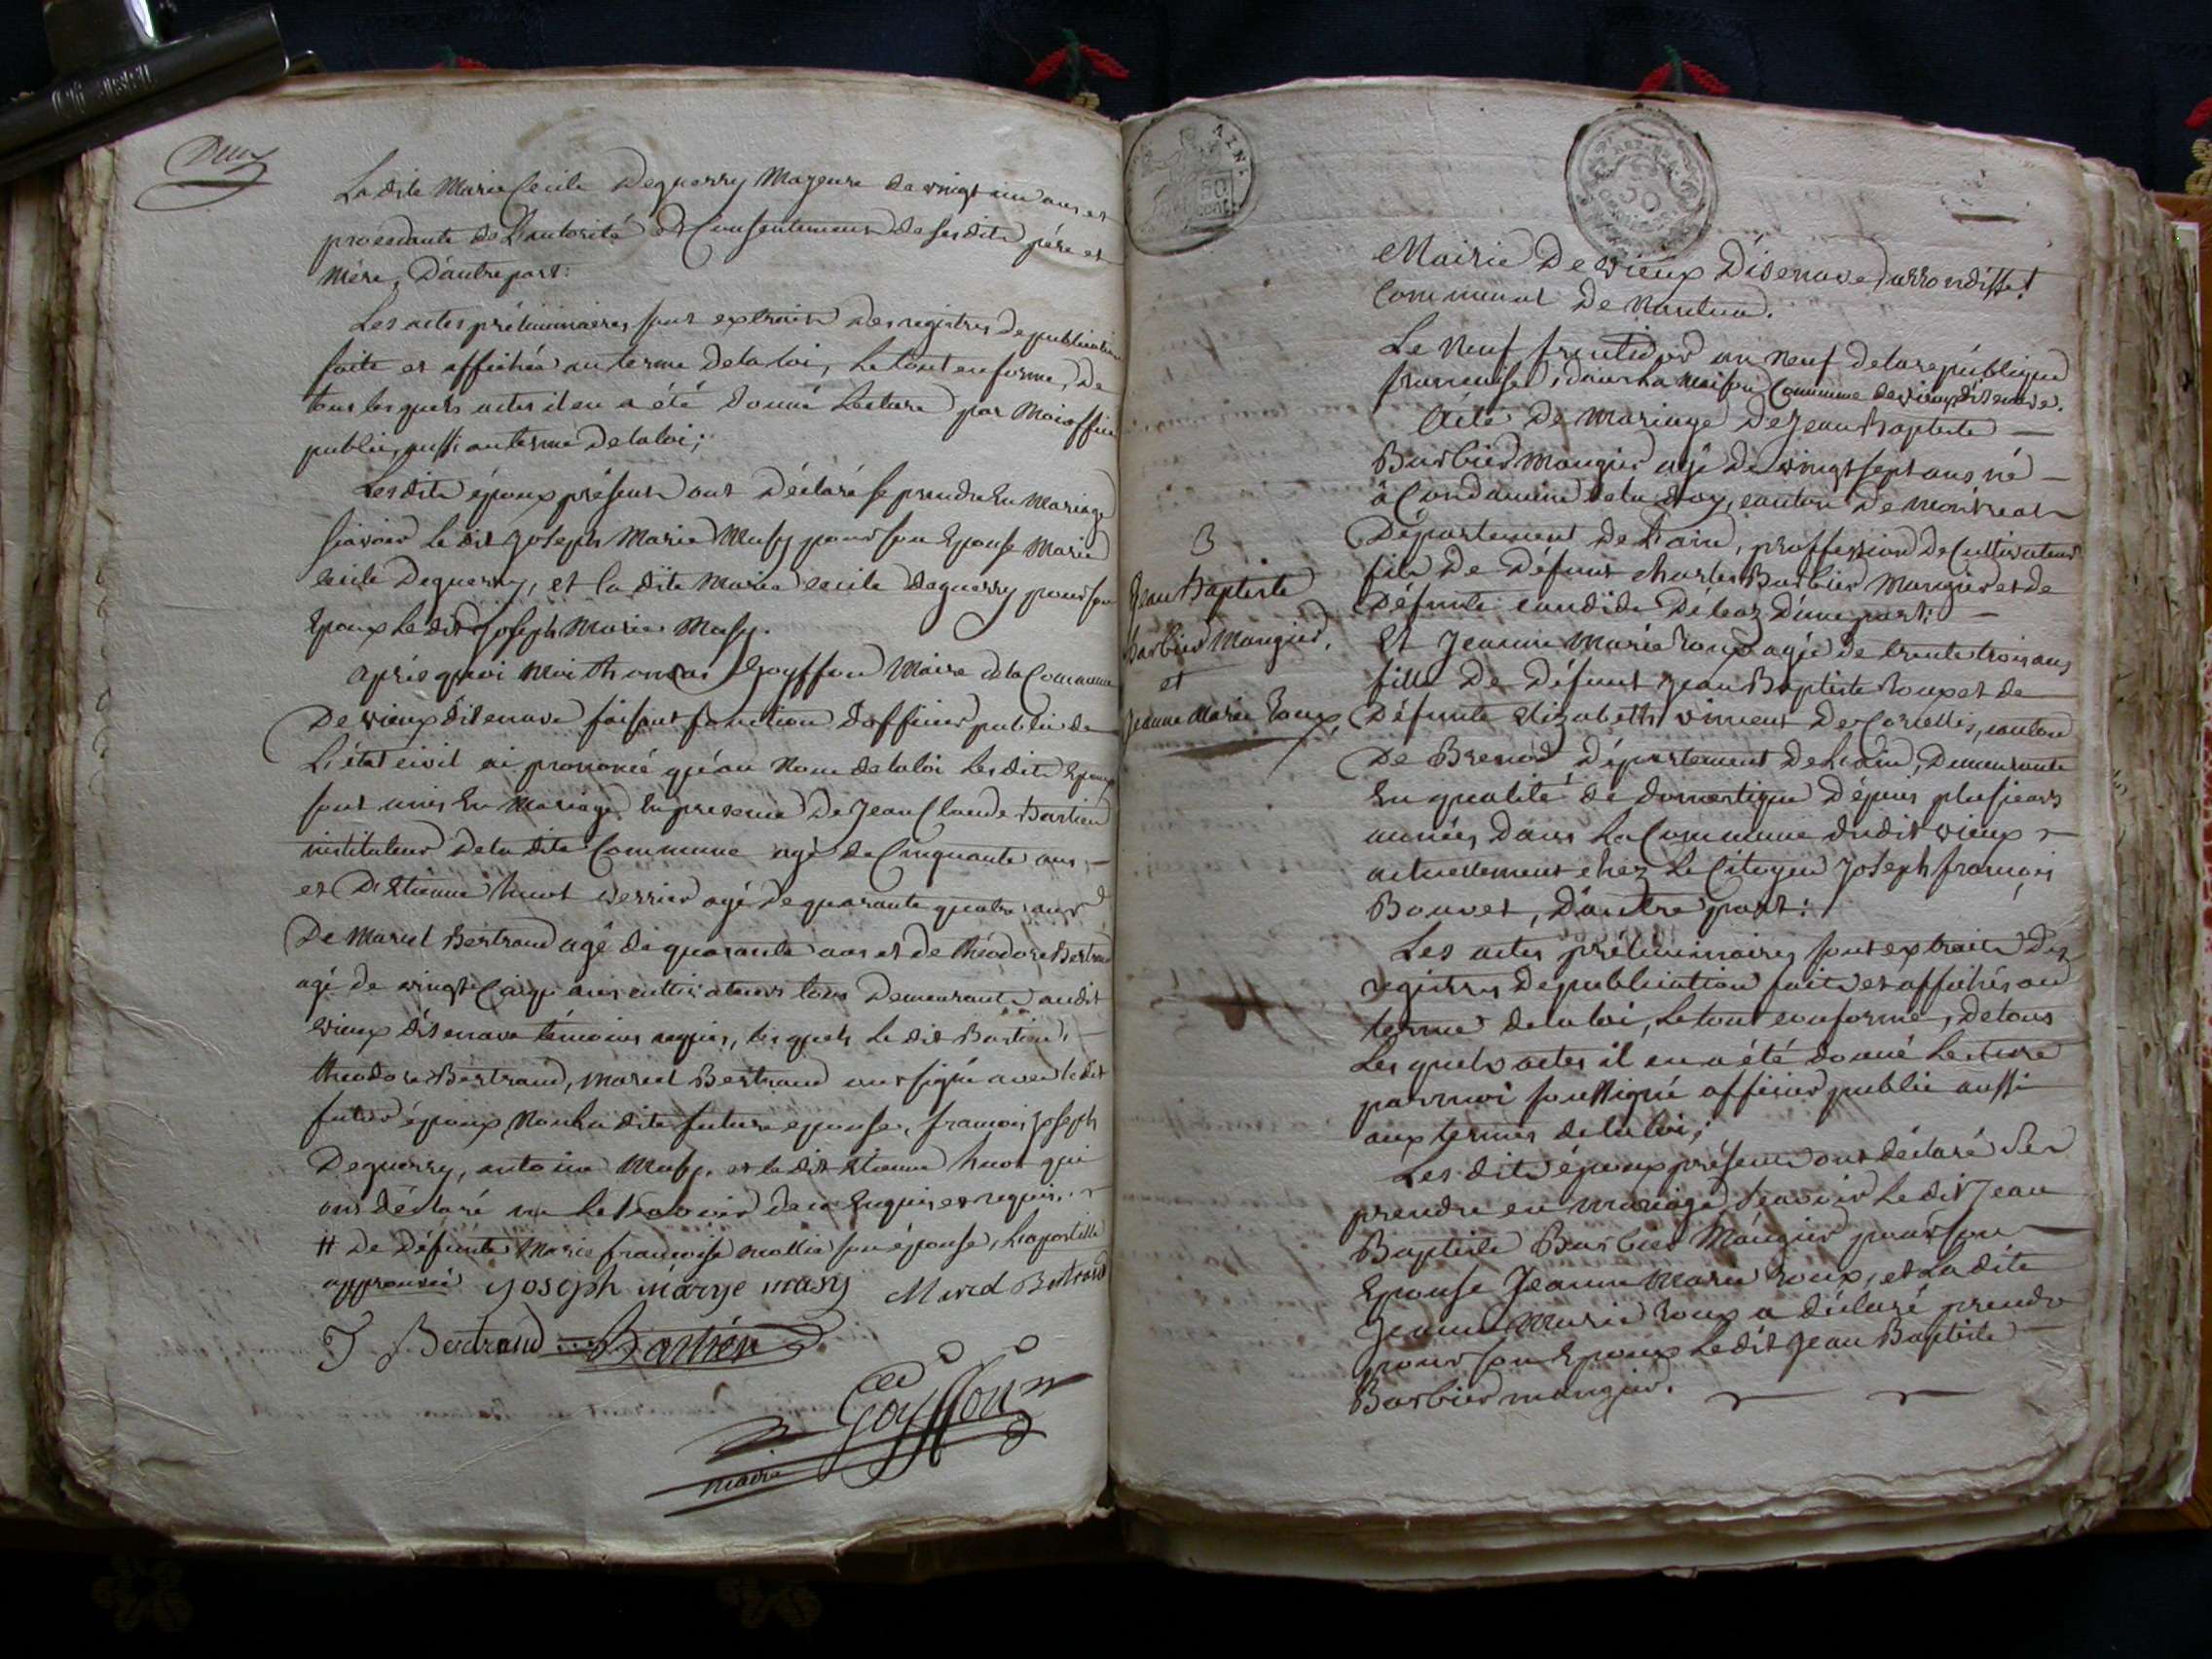 Deux
La dite Marie Cecile Deguerry Mageure de vingt un ans et
procédante de L'autorité et Consentement de ses dits père et
Mère, D'autre part:
Les actes préliminaires sont extraits des registres de publication
faite et affichée au terme de la loi, Le tout en forme, De
tous les quels actes il en a été donné Lecture par Moi officier
public, aussi au terme de la loi;
Les dits époux présents ont Déclaré se prendre En Mariage
sçavoir Le dit Joseph Marie Musy pour son Epouse Marie
Cecile Deguerry, et la dite Marie cecile deguerry pour son
Epoux Le dit Joseph Marie Musy.
après quoi Moi thomas Goyffon Maire de la Commune
De vieux disenave faisant fonction d'officier public de
L'état civil ai prononcé qu'au Nom de la loi Les dits Epoux
sont unis En Mariage En presence De Jean Claude Bastien
instituteur De la dite Commune agé de Cinquante ans,
et D'Etienne huot verrier agé de quarante quatre ans
De Marcel Bertrand agé de quarante ans et de théodore Bertrand
agé de vingt Cinq ans cultivateurs tous Demeurants audit
vieux disenave témoins requis, les quels Le dit Bastien,
théodore Bertrand, Marcel Bertrand ont signé avec le dit
futur époux, Non La dite future epouse, francois Joseph
Deguerry, antoine Musy, et le dit Etienne huot qui
ont déclaré ne Le savoir de ce Enquis et requis.
# De Défunte Marie francoise mollie son épouse, L'apostille
approuvée Joseph marye musy Marcel Bertrand
T Bertrand Bastien
Goyffon
maire
AIN.
50
cent.
REP. FRA.
50
Mairie De vieux Disenave, arrondisse.t
Communal De Nantua.
Le Neuf fructidor an Neuf de la république
francaise, dans La maison Commune de vieux disenave.
Acte De Mariage De Jean Baptiste
Barbier Mangier agé de vingt sept ans né
à Condamine de la doy, canton De Montreal
Département De L'ain, proffession De Cultivateur
fils De Défunt charles Barbier Mangier et de
Défunte candide Déleaz D'une part:
3
Jean Baptiste
Barbier Mangier,
et
Jeanne Marie Roux,
Et Jeanne Marie Roux agée de trente trois ans
fille De Défunt Jean Baptiste Roux et de
Défunte Elizabeth vincent De Corcelles, canton
De Brenod Département De L'ain, Demeurante
En qualité de domestique Dépuis plusieurs
années Dans La Commune dudit vieux
actuellement chez Le Citoyen Joseph francois
Bouvet, D'autre part:
Les actes préliminaires sont extraits Des
registres de publication faite et affichés au
terme de la loi, Le tout en forme, de tous
Les quels actes il en a été donné Lecture
par moi soussigné officier public aussi
aux termes de la loi;
Les dits époux présents ont déclaré Se
prendre en mariage, sçavoir Le dit Jean
Baptiste Barbier Mangier pour son
Epouse Jeanne Marie Roux, et La dite
Jeanne Marie Roux a déclaré prendre
pour son Epoux Le dit Jean Baptiste
Barbier mangier.